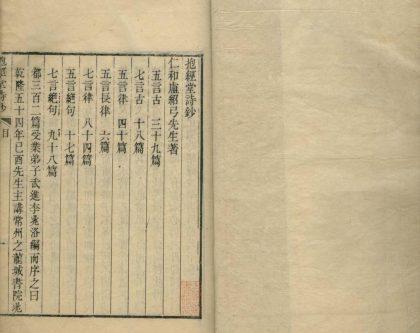 抱經堂詩鈔
仁和盧紹弓先生著
五言古 三十九篇
七言古 十八篇
五言律 四十篇
五言長律 六篇
七言律 八十四篇
五言絕句 十七篇
七言絕句 九十八篇
都三百二篇受業弟子武進李兆洛編而序之曰
乾隆五十四年己酉先生主講常州之龍城書院兆
抱經堂詩鈔 目 一